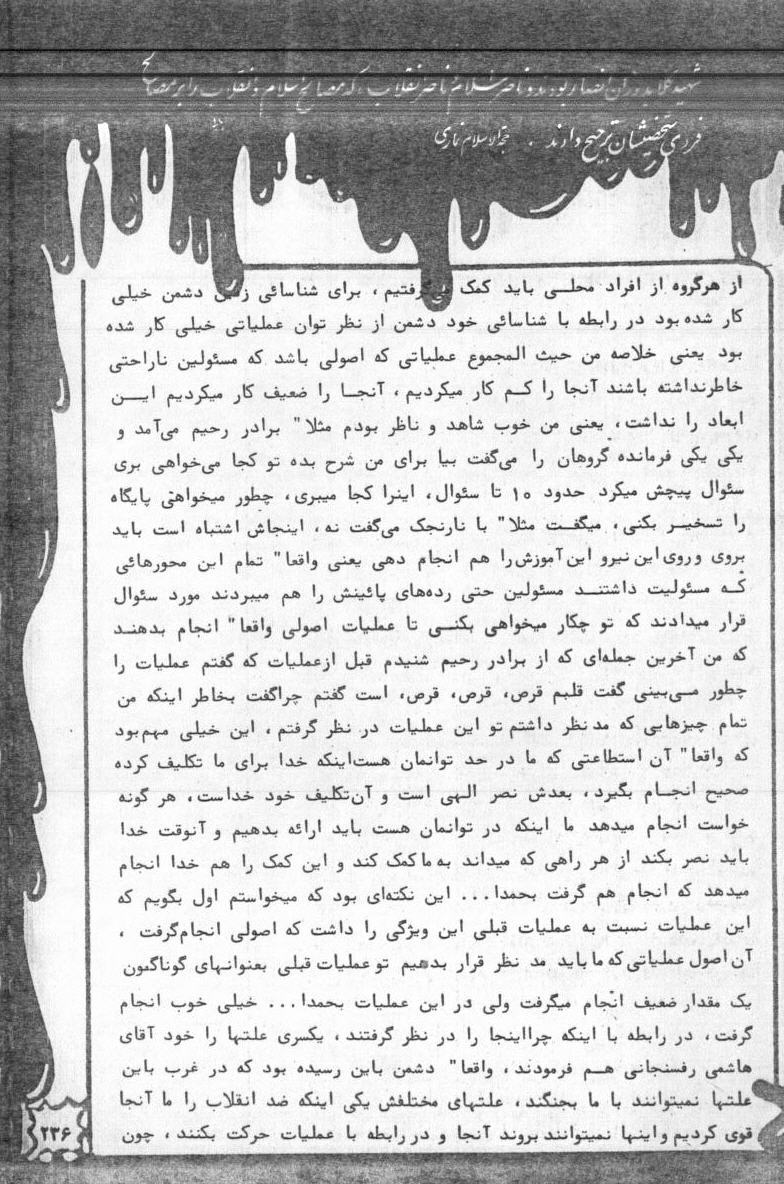 شهید کلاهدوزان انصار بودند و ناصر اسلام و ناصر انقلاب، که مصالح اسلام و انقلاب را بر مصالح
فردی و شخصیشان ترجیح دارند . حجةالاسلام نمازی
از هرگروه از افراد محلـی باید کمک می‌گرفتیم ، برای شناسائی زمین دشمن خیلی
کار شده بود در رابطه با شناسائی خود دشمن از نظر توان عملیاتی خیلی کار شده
بود یعنی خلاصه من حیث المجموع عملیاتی که اصولی باشد که مسئولین ناراحتی
خاطرنداشته باشند آنجا را کـم کار میکردیم ، آنجـا را ضعیف کار میکردیم ایــن
ابعاد را نداشت، یعنی من خوب شاهد و ناظر بودم مثلا" برادر رحیم می‌آمد و
یکی یکی فرمانده گروهان را می‌گفت بیا برای من شرح بده تو کجا می‌خواهی بری
سئوال پیچش میکرد حدود ۱۰ تا سئوال، اینرا کجا میبری، چطور میخواهی پایگاه
را تسخیـر بکنی، میگفـت مثلا" با نارنجک می‌گفت نه، اینجاش اشتباه است باید
بروی و روی این نیرو این آموزش را هم انجام دهی یعنی واقعا" تمام این محورهائی
کـه مسئولیت داشتنـد مسئولین حتی رده‌های پائینش را هم میبردند مورد سئوال
قرار میدادند که تو چکار میخواهی بکنـی تا عملیات اصولی واقعا" انجام بدهنـد
که من آخرین جمله‌ای که از برادر رحیم شنیدم قبل ازعملیات که گفتم عملیات را
چطور مـی‌بینی گفت قلبم قرص، قرص، قرص، است گفتم چراگفت بخاطر اینکه من
تمام چیزهایی که مد نظر داشتم تو این عملیات در نظر گرفتم ، این خیلی مهم‌بود
که واقعا" آن استطاعتی که ما در حد توانمان هست‌اینکه خدا برای ما تکلیف کرده
صحیح انجـام بگیرد ، بعدش نصر الهی است و آن‌تکلیف خود خداست، هر گونه
خواست انجام میدهد ما اینکه در توانمان هست باید ارائه بدهیم و آنوقت خدا
باید نصر بکند از هر راهی که میداند به ما کمک کند و این کمک را هم خدا انجام
میدهد که انجام هم گرفت بحمدا... این نکته‌ای بود که میخواستم اول بگویم که
این عملیات نسبت به عملیات قبلی این ویژگی را داشت که اصولی انجام‌گرفت ،
آن اصول عملیاتی که ما باید مد نظر قرار بدهیم تو عملیات قبلی بعنوانهای گوناگون
یک مقدار ضعیف انجام میگرفت ولی در این عملیات بحمدا... خیلی خوب انجام
گرفت، در رابطه با اینکه چرااینجا را در نظر گرفتند ، یکسری علتها را خود آقای
هاشمی رفسنجانی هـم فرمودند ، واقعا" دشمن باین رسیده بود که در غرب باین
علتها نمیتوانند با ما بجنگند، علتهای مختلفش یکی اینکه ضد انقلاب را ما آنجا
قوی کردیم و اینها نمیتوانند بروند آنجا و در رابطه با عملیات حرکت بکنند ، چون
۲۳۶